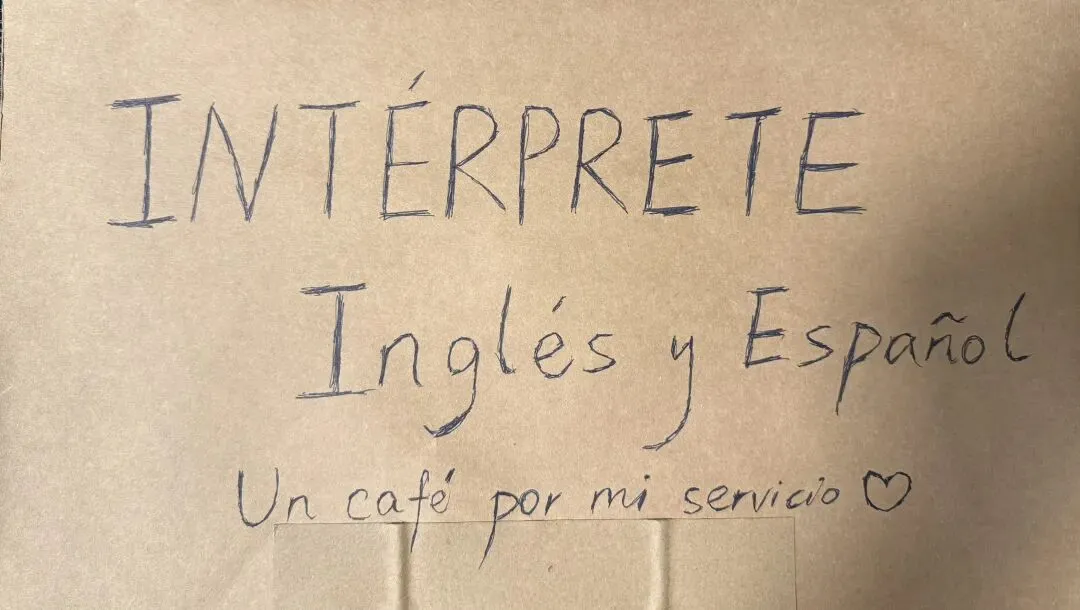 INTÉRPRETE
Inglés y Español
Un café por mi servicio ♡